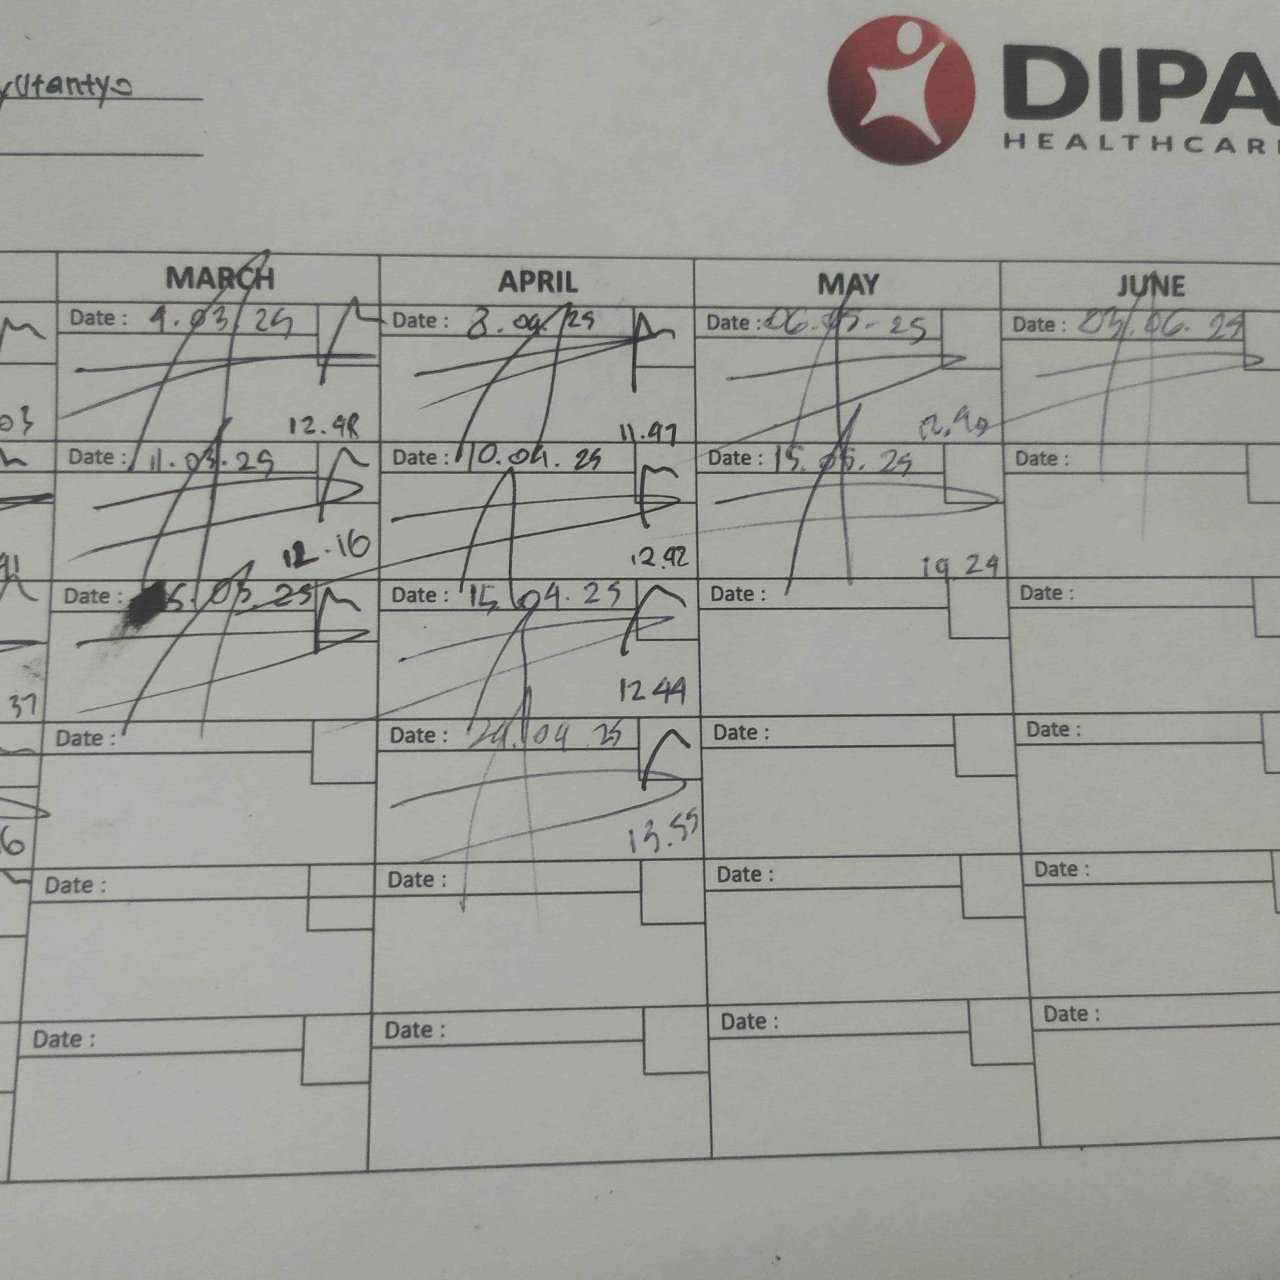 DIPA
HEALTHCAR
MARCH APRIL MAY JUNE
Date : 4.03.25 Date : 8.04.25 Date : 06.05.25 Date : 03.06.25
03 12.48 11.47
Date : 11.03.25 Date : 10.04.25 Date : 15.05.25 Date :
12.16 12.42 14 24
Date : 03.25 Date : 15.04.25 Date : Date :
37 12 44
Date : Date : 24.04.25 Date : Date :
13.55
Date : Date : Date : Date :
Date : Date : Date : Date :